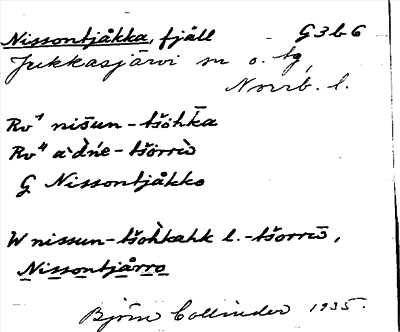 Nissontjåkka, fjäll G3b6
Jukkasjärvi sn o. tg,
Norrb. l.
Rv¹ nišun-tšohka
Rv⁴ àdńe-tšorrō
G Nissontjåkko
W nissun-tšohkahk l. -tšorrō,
Nissontjårro
Björn Collinder 1935.